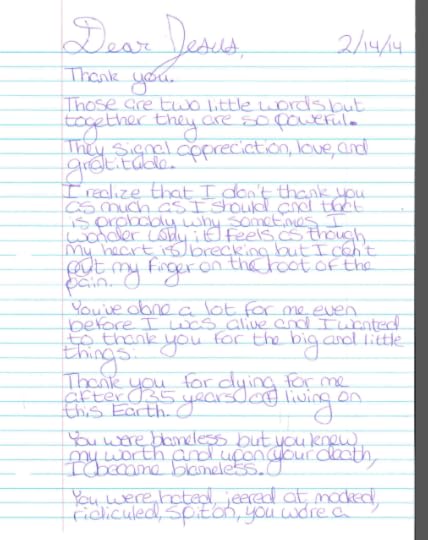 Dear Jesus, 2/14/14
Thank you.
Those are two little words but
together they are so powerful.
They signal appreciation, love, and
gratitude.
I realize that I don't thank you
as much as I should and that
is probably why sometimes I
wonder why it feels as though
my heart is breaking but I can't
put my finger on the root of the
pain.
You've done a lot for me even
before I was alive and I wanted
to thank you for the big and little
things:
Thank you for dying for me
after 35 years of living on
this Earth.
You were blameless but you knew
my worth and upon your death,
I became blameless.
You were hated, jeered at, mocked,
ridiculed, spit on, you wore a